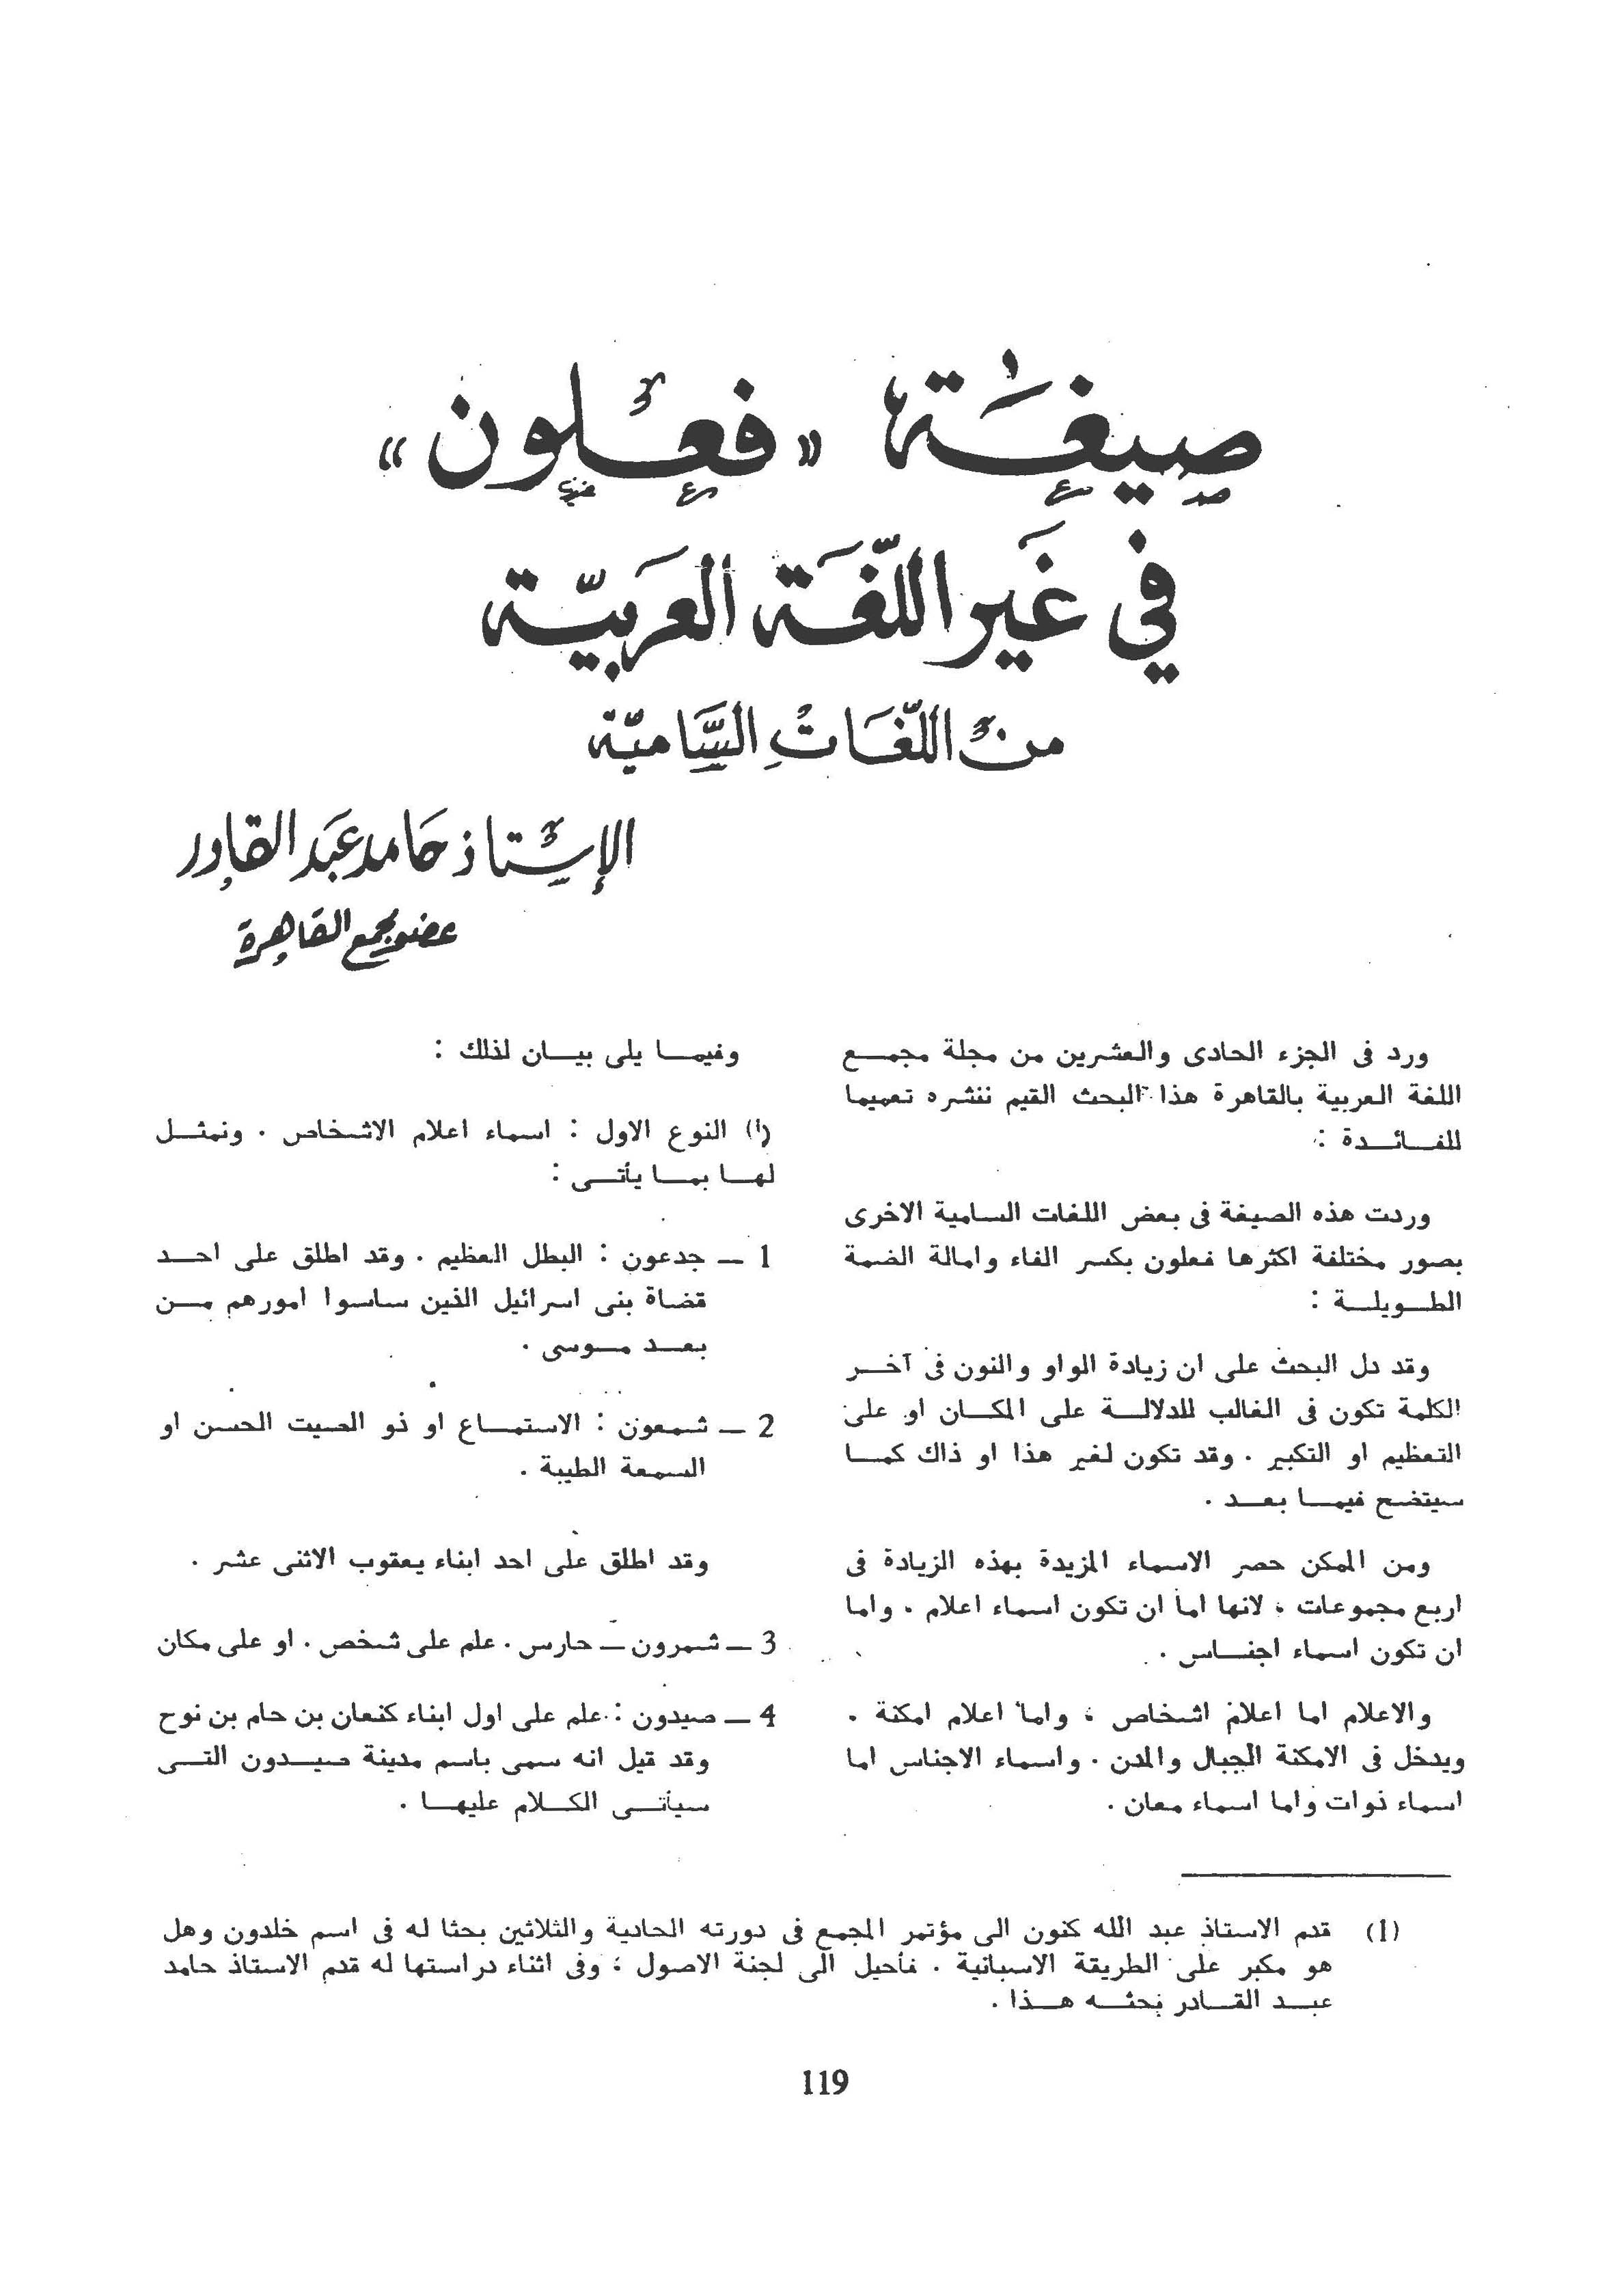 صيغة «فعلون»
في غير اللغة العربية
من اللغات السامية
الإستاذ حامد عبد القادر
عضو مجمع القاهرة
ورد فى الجزء الحادى والعشرين من مجلة مجمع
اللغة العربية بالقاهرة هذا البحث القيم ننشره تعميما
للفائدة :
وردت هذه الصيغة فى بعض اللغات السامية الاخرى
بصور مختلفة اكثرها فعلون بكسر الفاء وامالة الضمة
الطويلة :
وقد دل البحث على ان زيادة الواو والنون فى آخر
الكلمة تكون فى الغالب للدلالة على المكان او على
التعظيم او التكبير . وقد تكون لغير هذا او ذاك كما
سيتضح فيما بعد .
ومن الممكن حصر الاسماء المزيدة بهذه الزيادة فى
اربع مجموعات ، لانها اما ان تكون اسماء اعلام . واما
ان تكون اسماء اجناس .
والاعلام اما اعلام اشخاص ، واما اعلام امكنة .
ويدخل فى الامكنة الجبال والمدن . واسماء الاجناس اما
اسماء ذوات واما اسماء معان .
وفيما يلى بيان لذلك :
(ا) النوع الاول : اسماء اعلام الاشخاص . ونمثل
لها بما يأتى :
1 — جدعون : البطل العظيم . وقد اطلق على احد
قضاة بنى اسرائيل الذين ساسوا امورهم من
بعد موسى .
2 — شمعون : الاستماع او ذو الصيت الحسن او
السمعة الطيبة .
وقد اطلق على احد ابناء يعقوب الاثنى عشر .
3 — شمرون — حارس . علم على شخص . او على مكان
4 — صيدون : علم على اول ابناء كنعان بن حام بن نوح
وقد قيل انه سمى باسم مدينة صيدون التى
سيأتى الكلام عليها .
(1) قدم الاستاذ عبد الله كنون الى مؤتمر المجمع فى دورته الحادية والثلاثين بحثا له فى اسم خلدون وهل
هو مكبر على الطريقة الاسبانية . فأحيل الى لجنة الاصول ؛ وفى اثناء دراستها له قدم الاستاذ حامد
عبد القادر بحثه هذا .
119